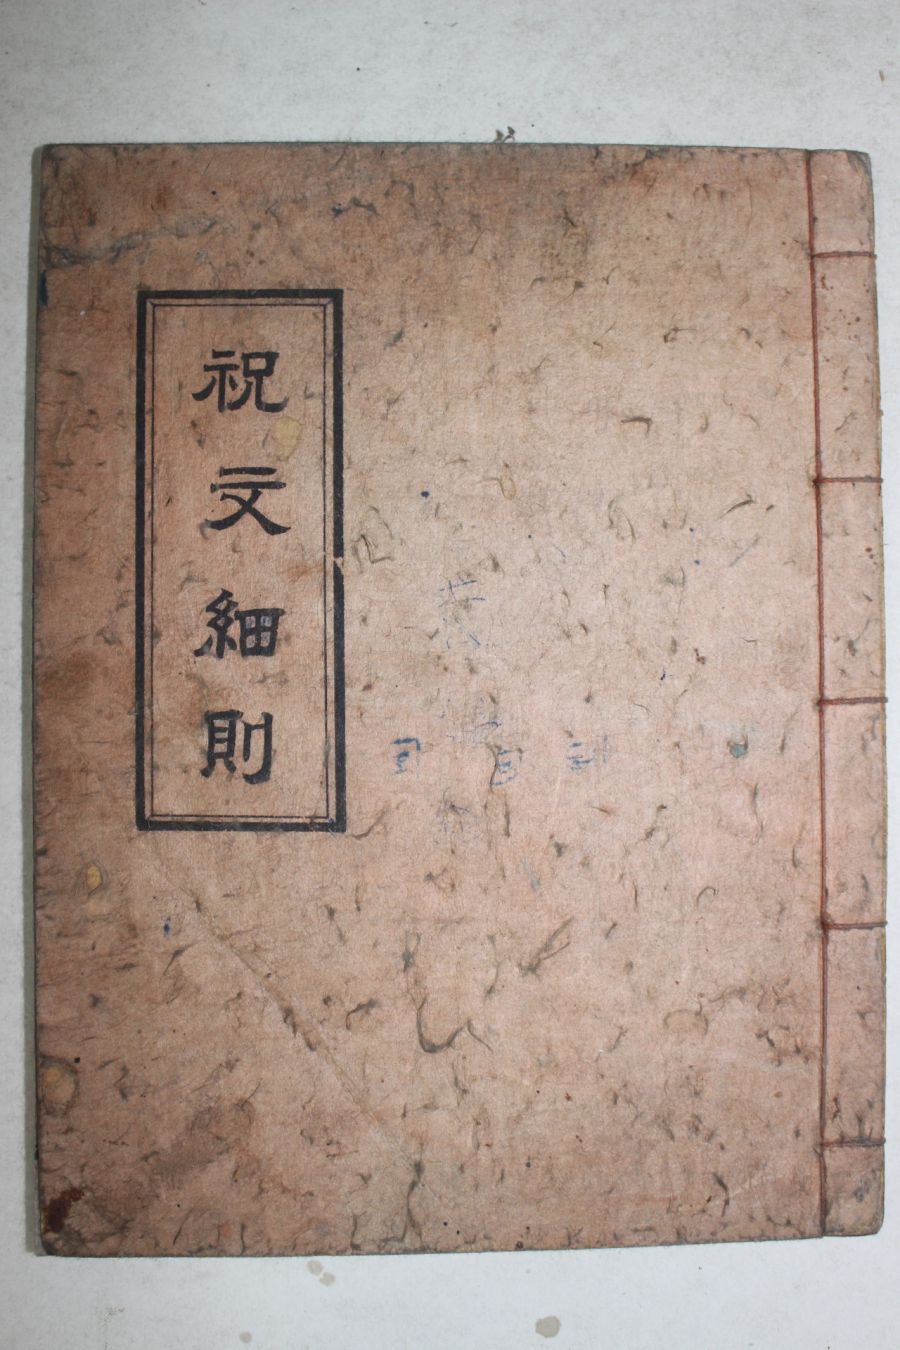 祝文細則